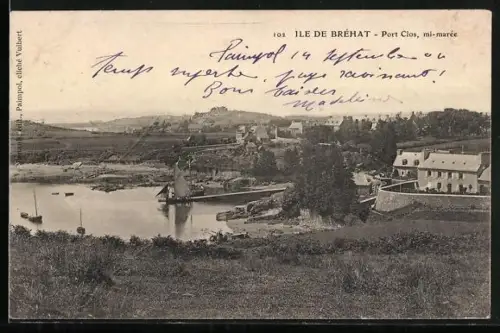 102 ILE DE BRÉHAT - Port Clos, mi-marée
Paimpol 14 Septembre
Temps superbe, pays ravissant !
Bons baisers
Madeleine
Paimpol, cliché Vulbert